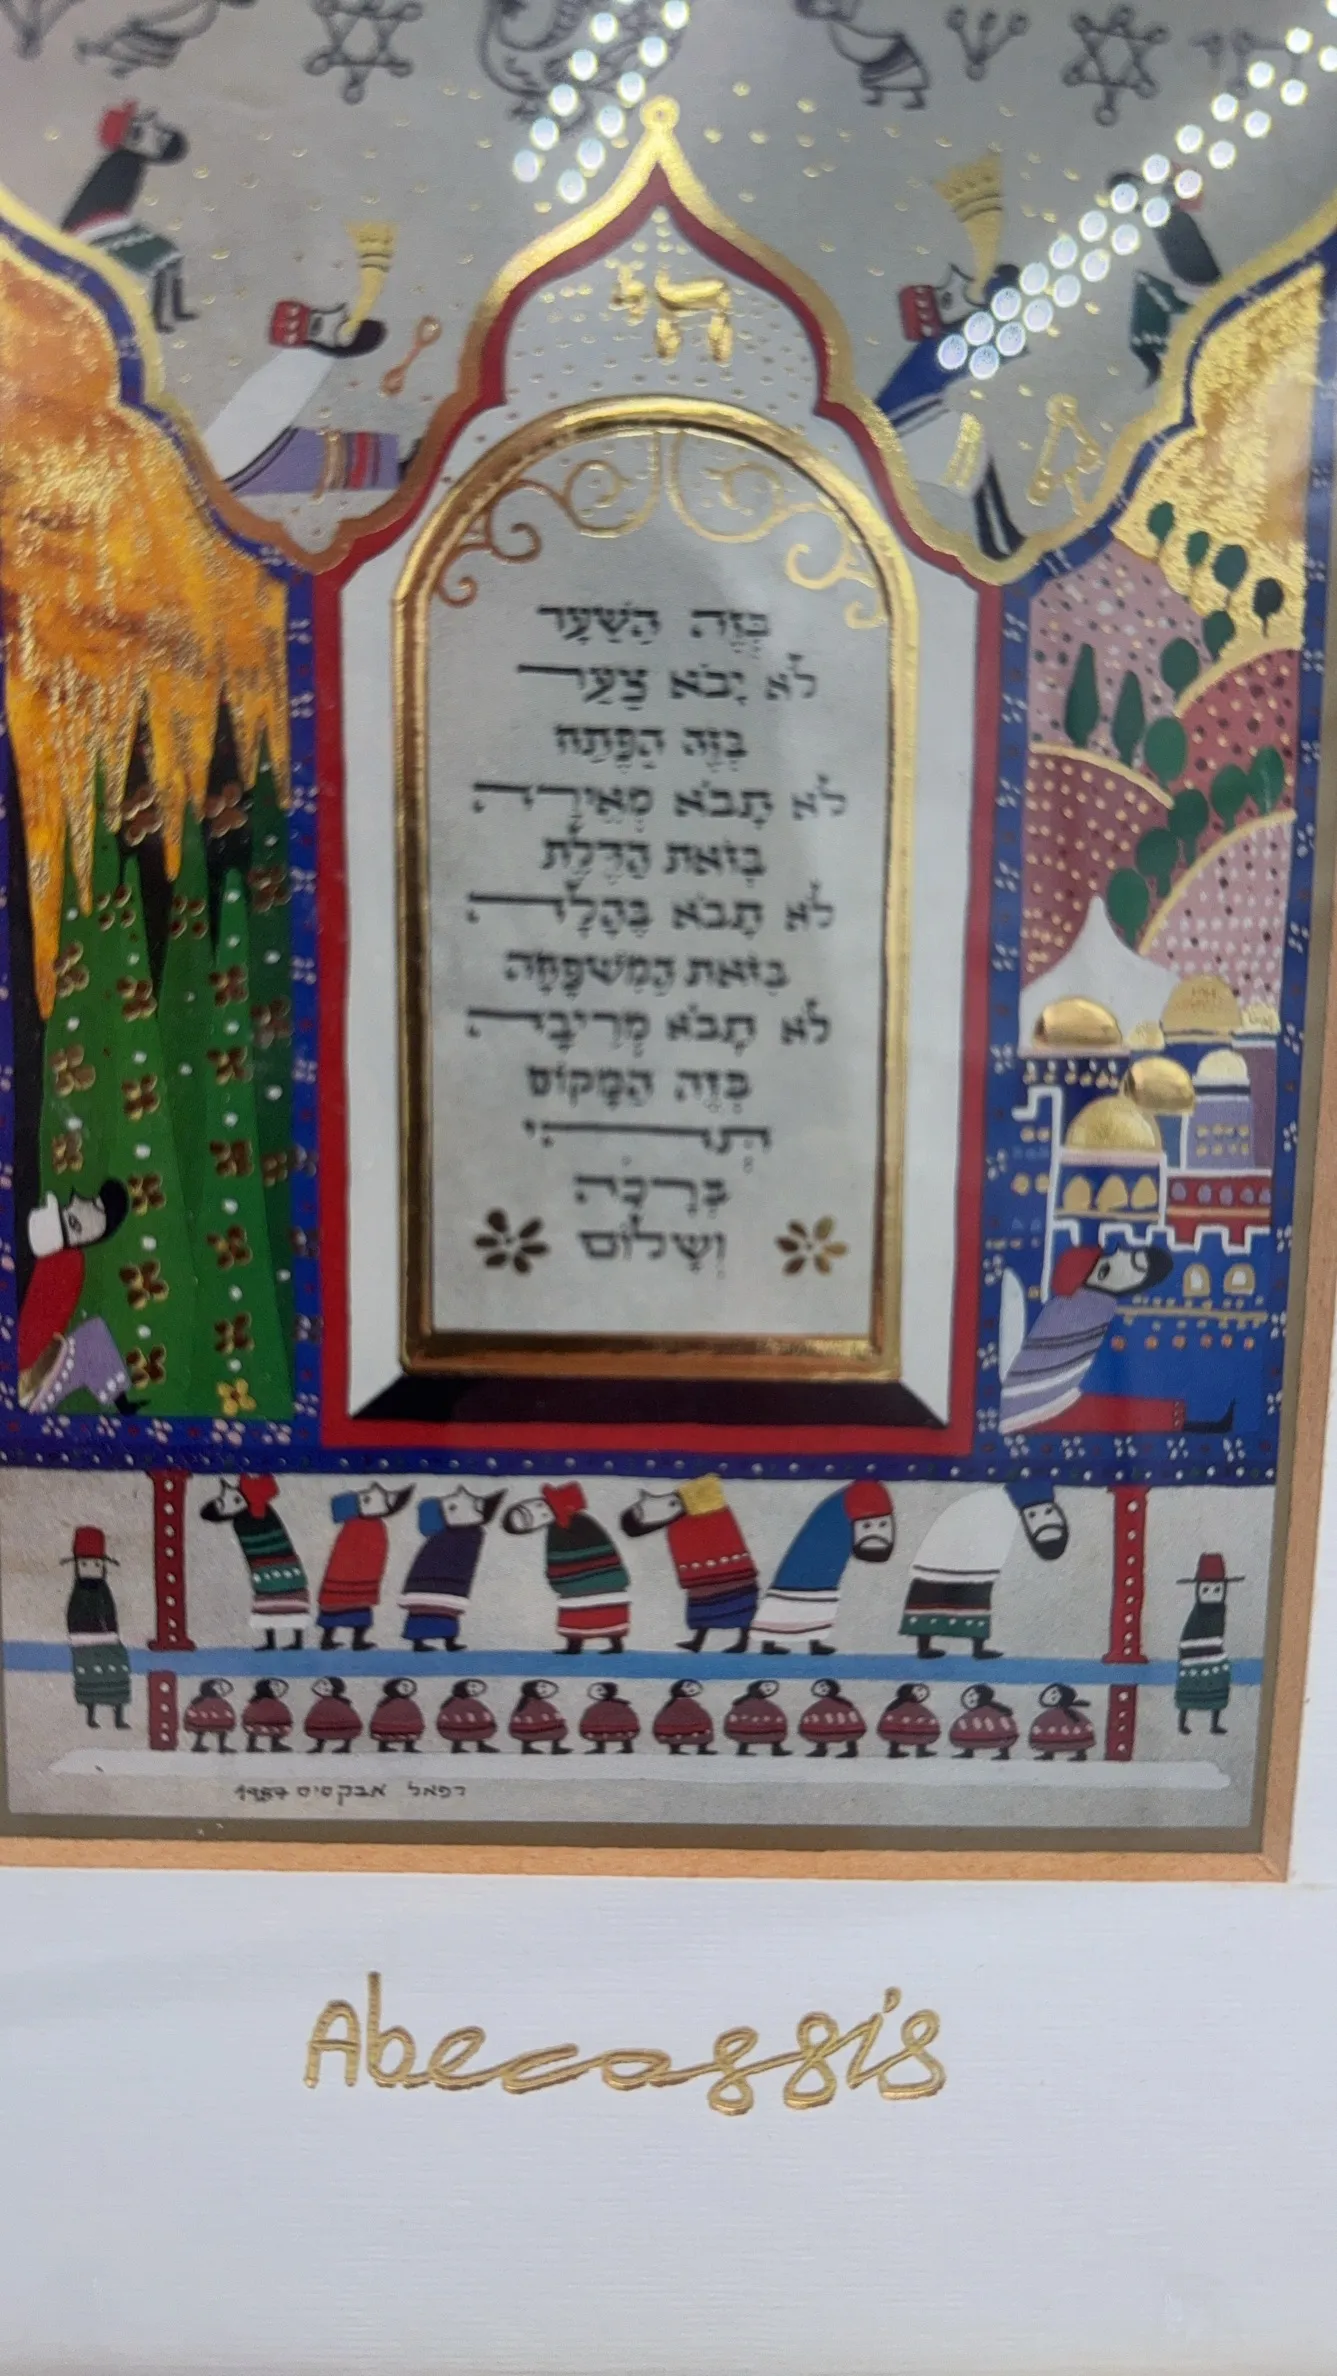 חי
בְּזֶה הַשַּׁעַר
לֹא יָבֹא צַעַר
בְּזֶה הַפֶּתַח
לֹא תָבֹא מְאֵירָה
בְּזֹאת הַדֶּלֶת
לֹא תָבֹא בֶּהָלָה
בְּזֹאת הַמִּשְׁפָּחָה
לֹא תָבֹא מְרִיבָה
בְּזֶה הַמָּקוֹם
תְּהִי
בְּרָכָה
וְשָׁלוֹם
רפאל אבקסיס 1987
Abecassis